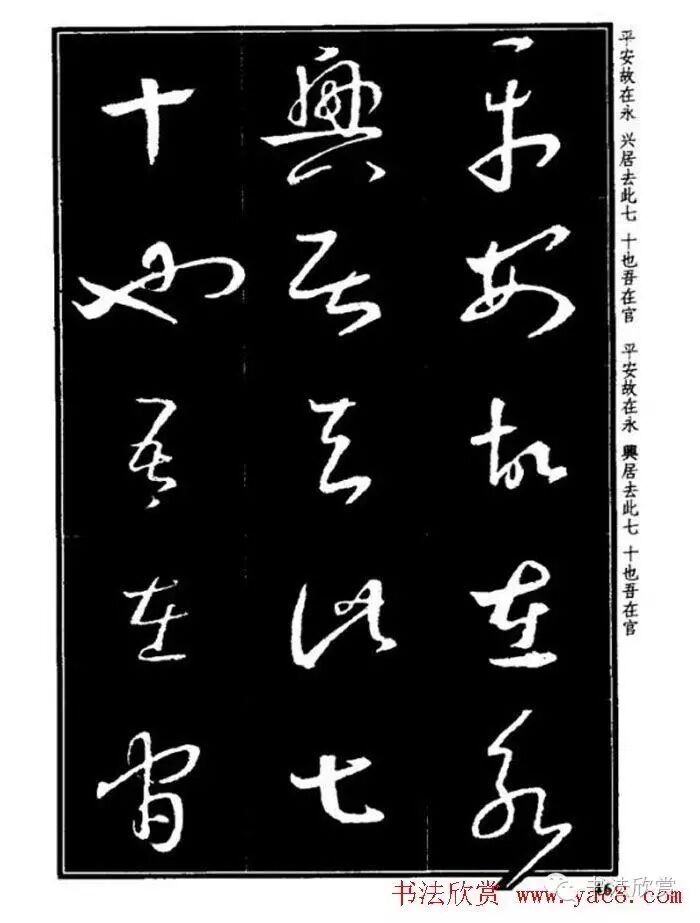 平安故在永
興居去此七
十也吾在官
平安故在永 兴居去此七 十也吾在官 平安故在永 興居去此七 十也吾在官
书法欣赏 www.yac8.com
书法欣赏